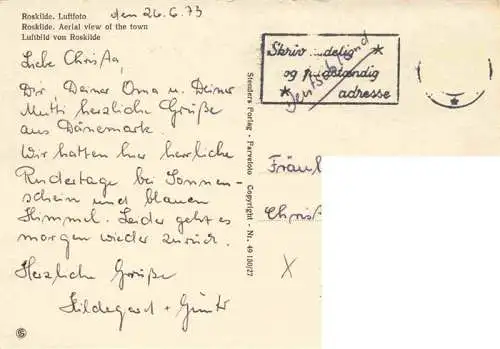 Roskilde. Luftfoto
Roskilde. Aerial view of the town
Luftbild von Roskilde
den 26.6.73
Liebe Christa,
Dir Deiner Oma u. Deiner
Mutti herzliche Grüße
aus Dänemark.
Wir hatten hier herrliche
Rudertage bei Sonnen-
schein und blauen
Himmel. Leider geht es
morgen wieder zurück.
Herzliche Grüße
Hildegard + Günter
Stenders Forlag - Farvefoto Copyright - Nr. 49 130/27
Skriv
og fuldstændig
adresse
Deutschland
Fräul
Chris
X